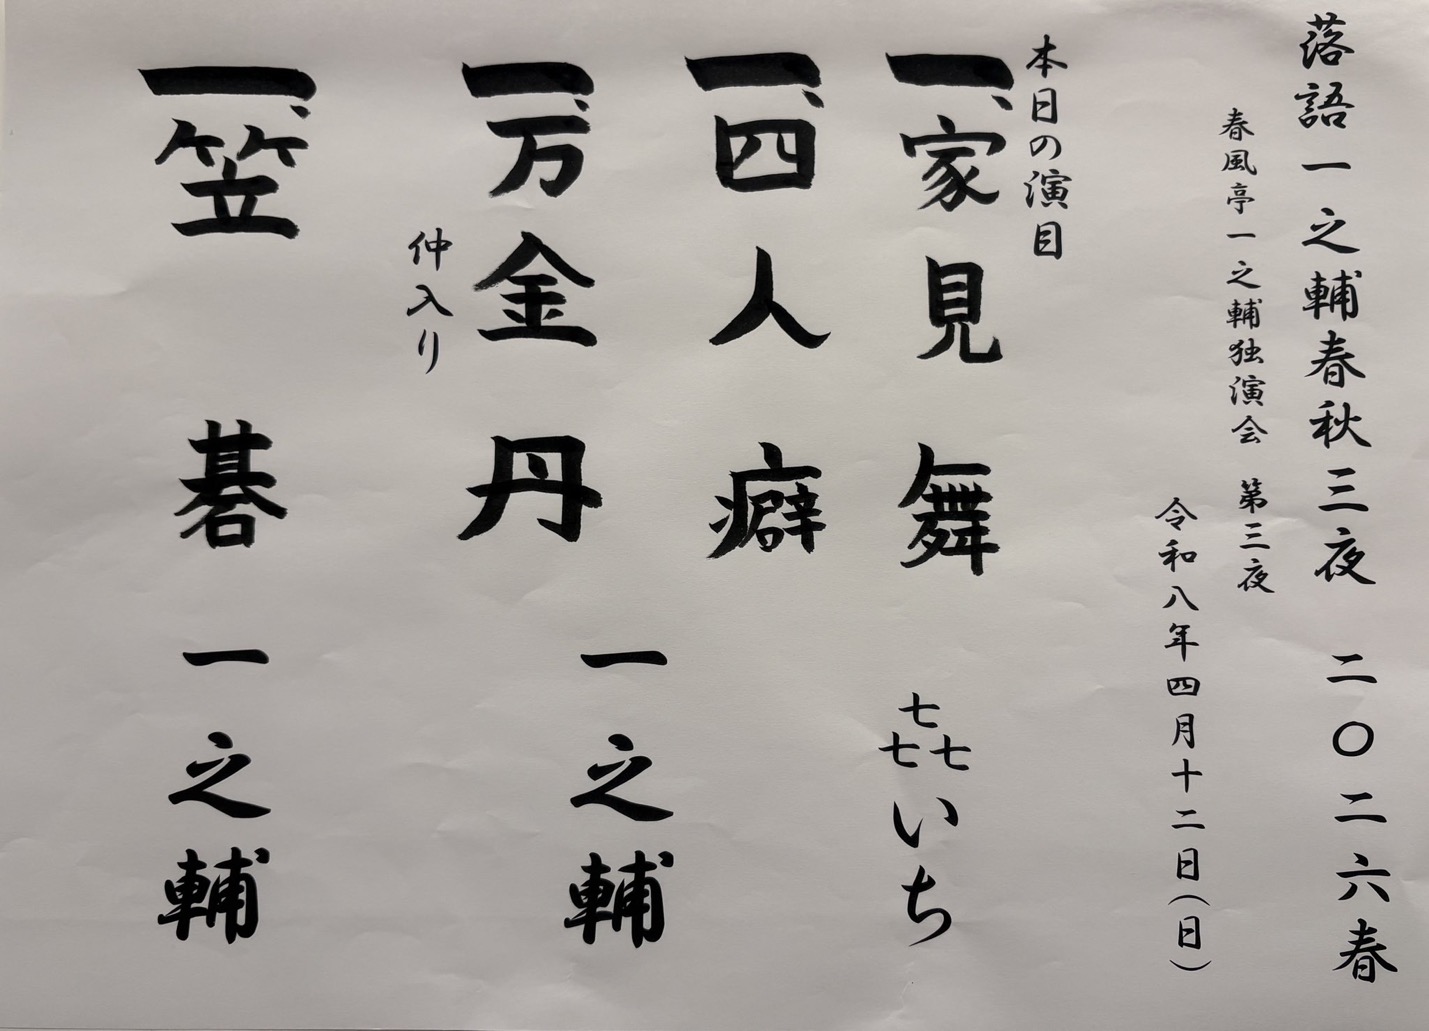 落語一之輔春秋三夜 二〇二六春
春風亭一之輔独演会 第三夜
令和八年四月十二日(日)
本日の演目
一、家見舞 㐂いち
一、四人癖
一、万金丹 一之輔
仲入り
一、笠碁 一之輔